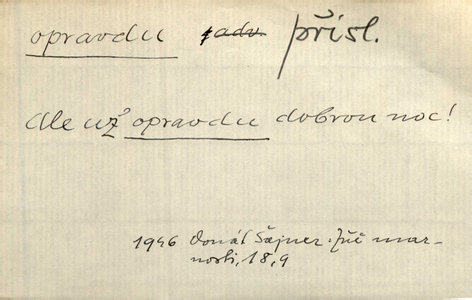 opravdu adv přísl.
Ale už opravdu dobrou noc!
1946 Donát Šajner: mar-
nosti, 18,9